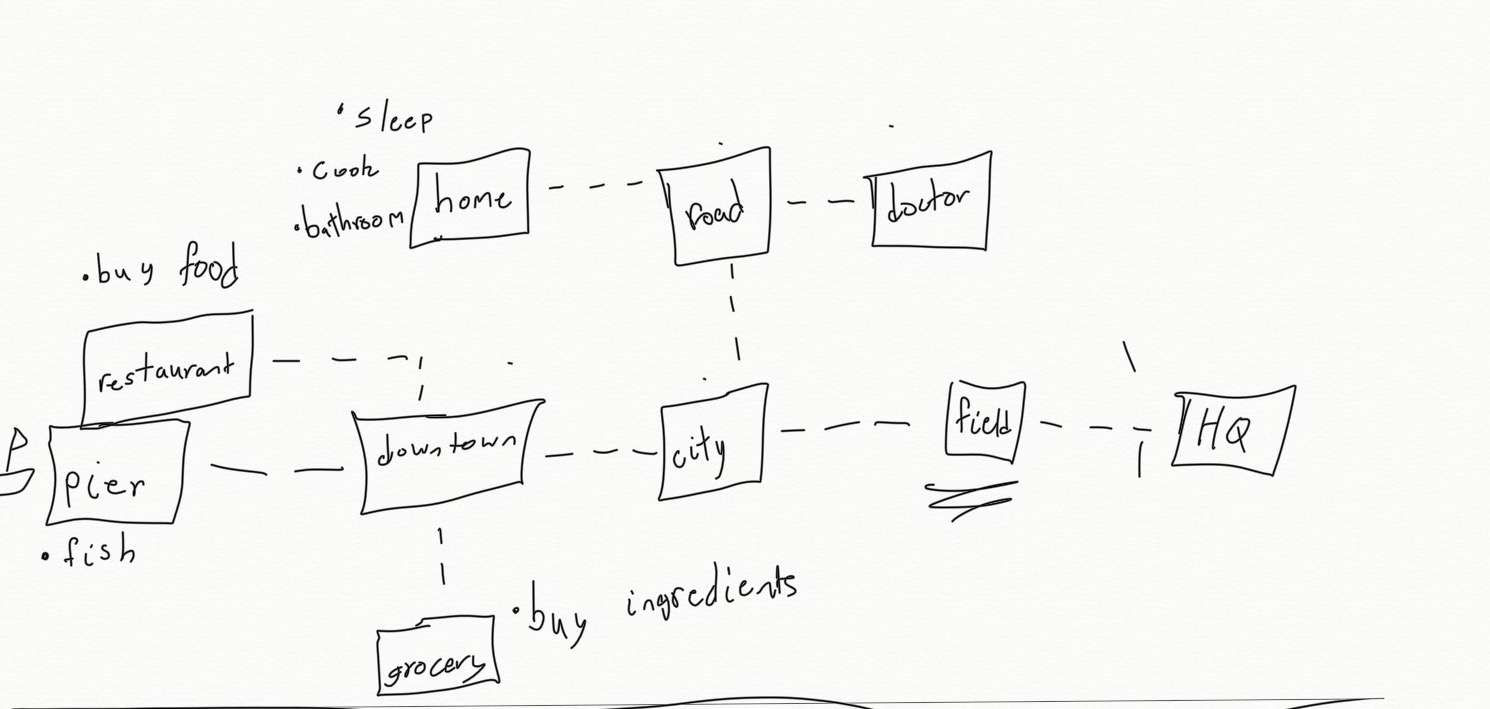 • sleep
• cook
• bathroom
home
road
doctor
• buy food
restaurant
pier
• fish
downtown
city
field
HQ
grocery
• buy ingredients